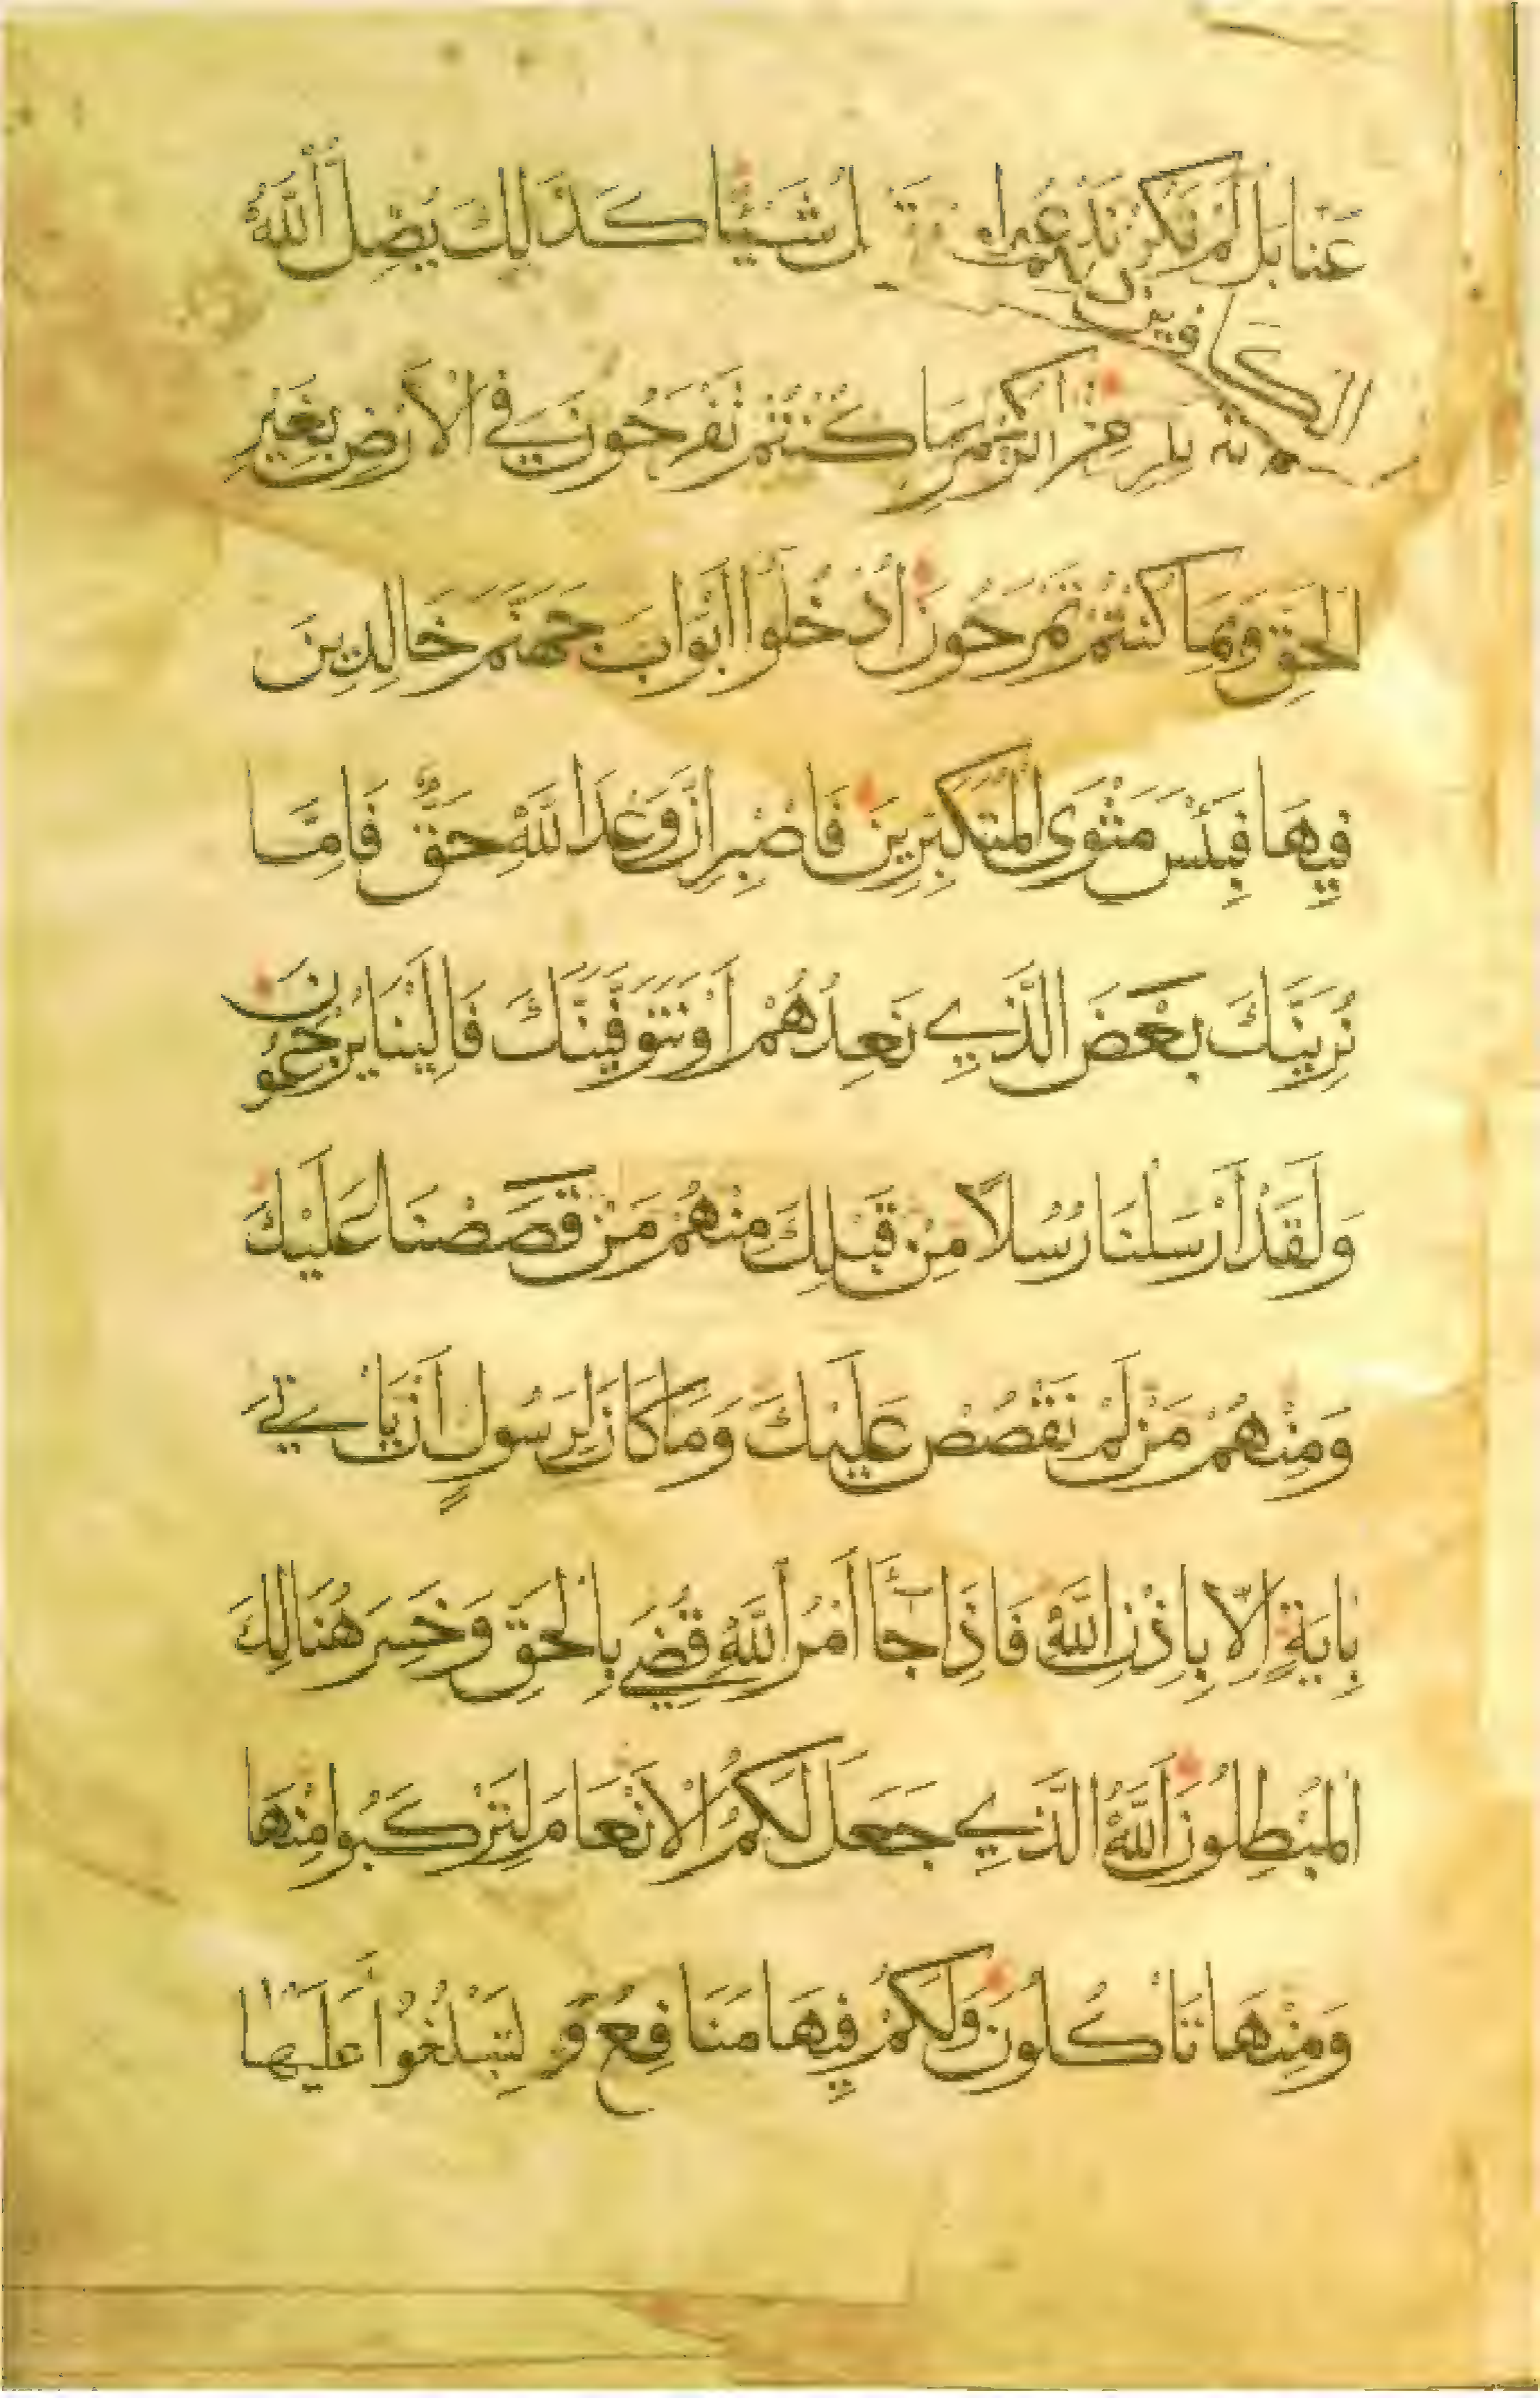 عَنَّا بَل لَّمْ نَكُن نَّدْعُوا شَيْئًا كَذَالِكَ يُضِلُّ اللَّهُ
الكافرين
كُنتُمْ تَفْرَحُونَ فِي الْأَرْضِ بِغَيْرِ
الْحَقِّ وَبِمَا كُنتُمْ تَمْرَحُونَ ادْخُلُوا أَبْوَابَ جَهَنَّمَ خَالِدِينَ
فِيهَا فَبِئْسَ مَثْوَى الْمُتَكَبِّرِينَ فَاصْبِرْ إِنَّ وَعْدَ اللَّهِ حَقٌّ فَإِمَّا
نُرِيَنَّكَ بَعْضَ الَّذِي نَعِدُهُمْ أَوْ نَتَوَفَّيَنَّكَ فَإِلَيْنَا يُرْجَعُونَ
وَلَقَدْ أَرْسَلْنَا رُسُلًا مِنْ قَبْلِكَ مِنْهُمْ مَنْ قَصَصْنَا عَلَيْكَ
وَمِنْهُمْ مَنْ لَمْ نَقْصُصْ عَلَيْكَ وَمَا كَانَ لِرَسُولٍ أَنْ يَأْتِيَ
بِايَةٍ إِلَّا بِإِذْنِ اللَّهِ فَإِذَا جَاءَ أَمْرُ اللَّهِ قُضِيَ بِالْحَقِّ وَخَسِرَ هُنَالِكَ
الْمُبْطِلُونَ اللَّهُ الَّذِي جَعَلَ لَكُمُ الْأَنْعَامَ لِتَرْكَبُوا مِنْهَا
وَمِنْهَا تَأْكُلُونَ وَلَكُمْ فِيهَا مَنَافِعُ وَ لِتَبْلُغُوا عَلَيْهَا